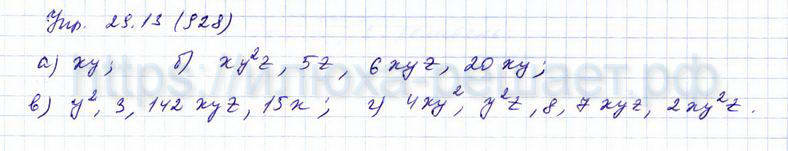 Упр. 29.13 (928)
а) xy; б) xy²z, 5z, 6xyz, 20xy;
в) y², 3, 142xyz, 15x; г) 4xy², y²z, 8, 7xyz, 2xy²z.